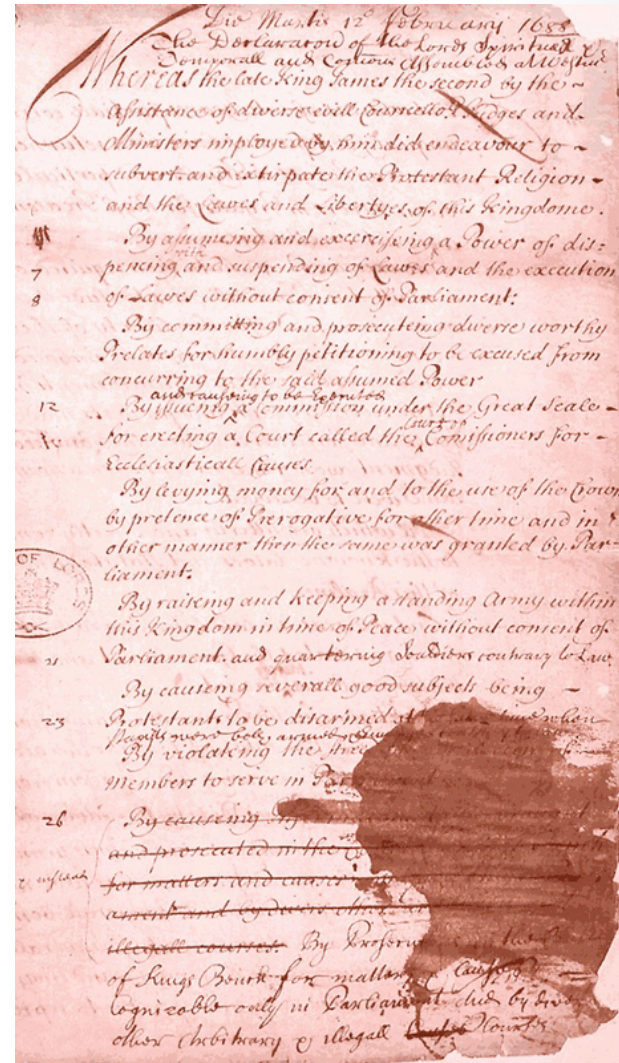 Die Martis 12° February 1688
The Declaration of the Lords Spirituall &
Temporall and Com̄ons Assembled at Westmr
Whereas the late King James the second by the ~
Assistance of diverse evill Councellors Judges and
Ministers imployed by him did endeavour to ~
subvert and extirpate the Protestant Religion ~
and the Lawes and Libertyes of this Kingdome.
By assumeing and exerciseing a Power of dis=
7 penceing with and suspending of Lawes and the execution
8 of Lawes without consent of Parliament:
By committing and prosecuteing diverse worthy
Prelates for humbly petitioning to be excused from
concurring to the said assumed Power
and causing to be Executed
12 By issueing a Com̄ission under the Great Seale ~
for erecting a Court called the Court of Com̄issioners for ~
Ecclesiasticall Causes.
By levying money for and to the use of the Crown
by pretence of Prerogative for other time and in
other manner then the same was granted by Par=
liament:
OF LORDS
By raiseing and keeping a standing Army within
this Kingdom in time of Peace without consent of
21 Parliament and quartering Souldiers contrary to Law
By causeing severall good subjects being ~
23 Protestants to be disarmed at the same time when
Papists were both armed
By violateing the
members to serve in
26 By causeing
and prosecuted in the
for matters and causes
ament and by divers other
illegall courses. By Prosecutions in the
of Kings Bench for matters & causes
Cognizable only in Parliament and by divers
other Arbitrary & illegall Courses